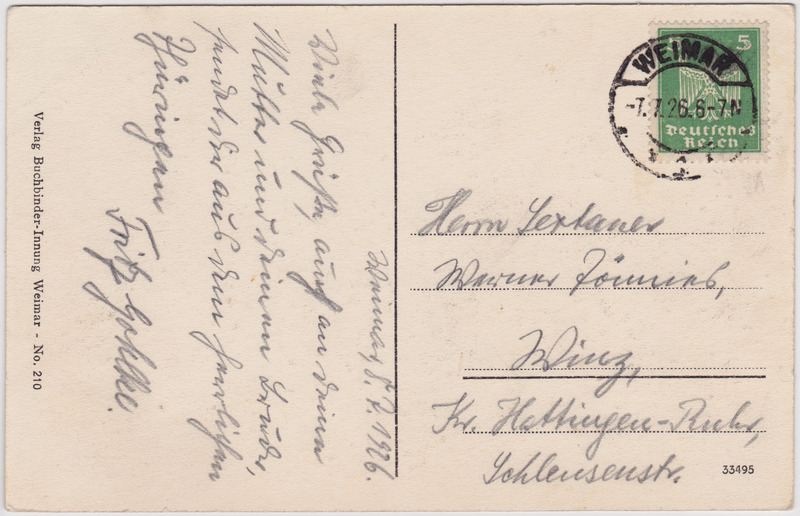 Weimar, 8.7.1926.
Viele Grüße, auch an deine
Mutter und deinen Bruder,
sendet dir aus dem herrlichen
Thüringen
Fritz
Verlag Buchbinder-Innung Weimar - No. 210
5 5
Deutsches
Reich
WEIMAR
-7.7.26.6-7N
Herrn Sextaner
Werner Tönnies,
Winz,
Kr. Hattingen-Ruhr,
Schleusenstr.
33495